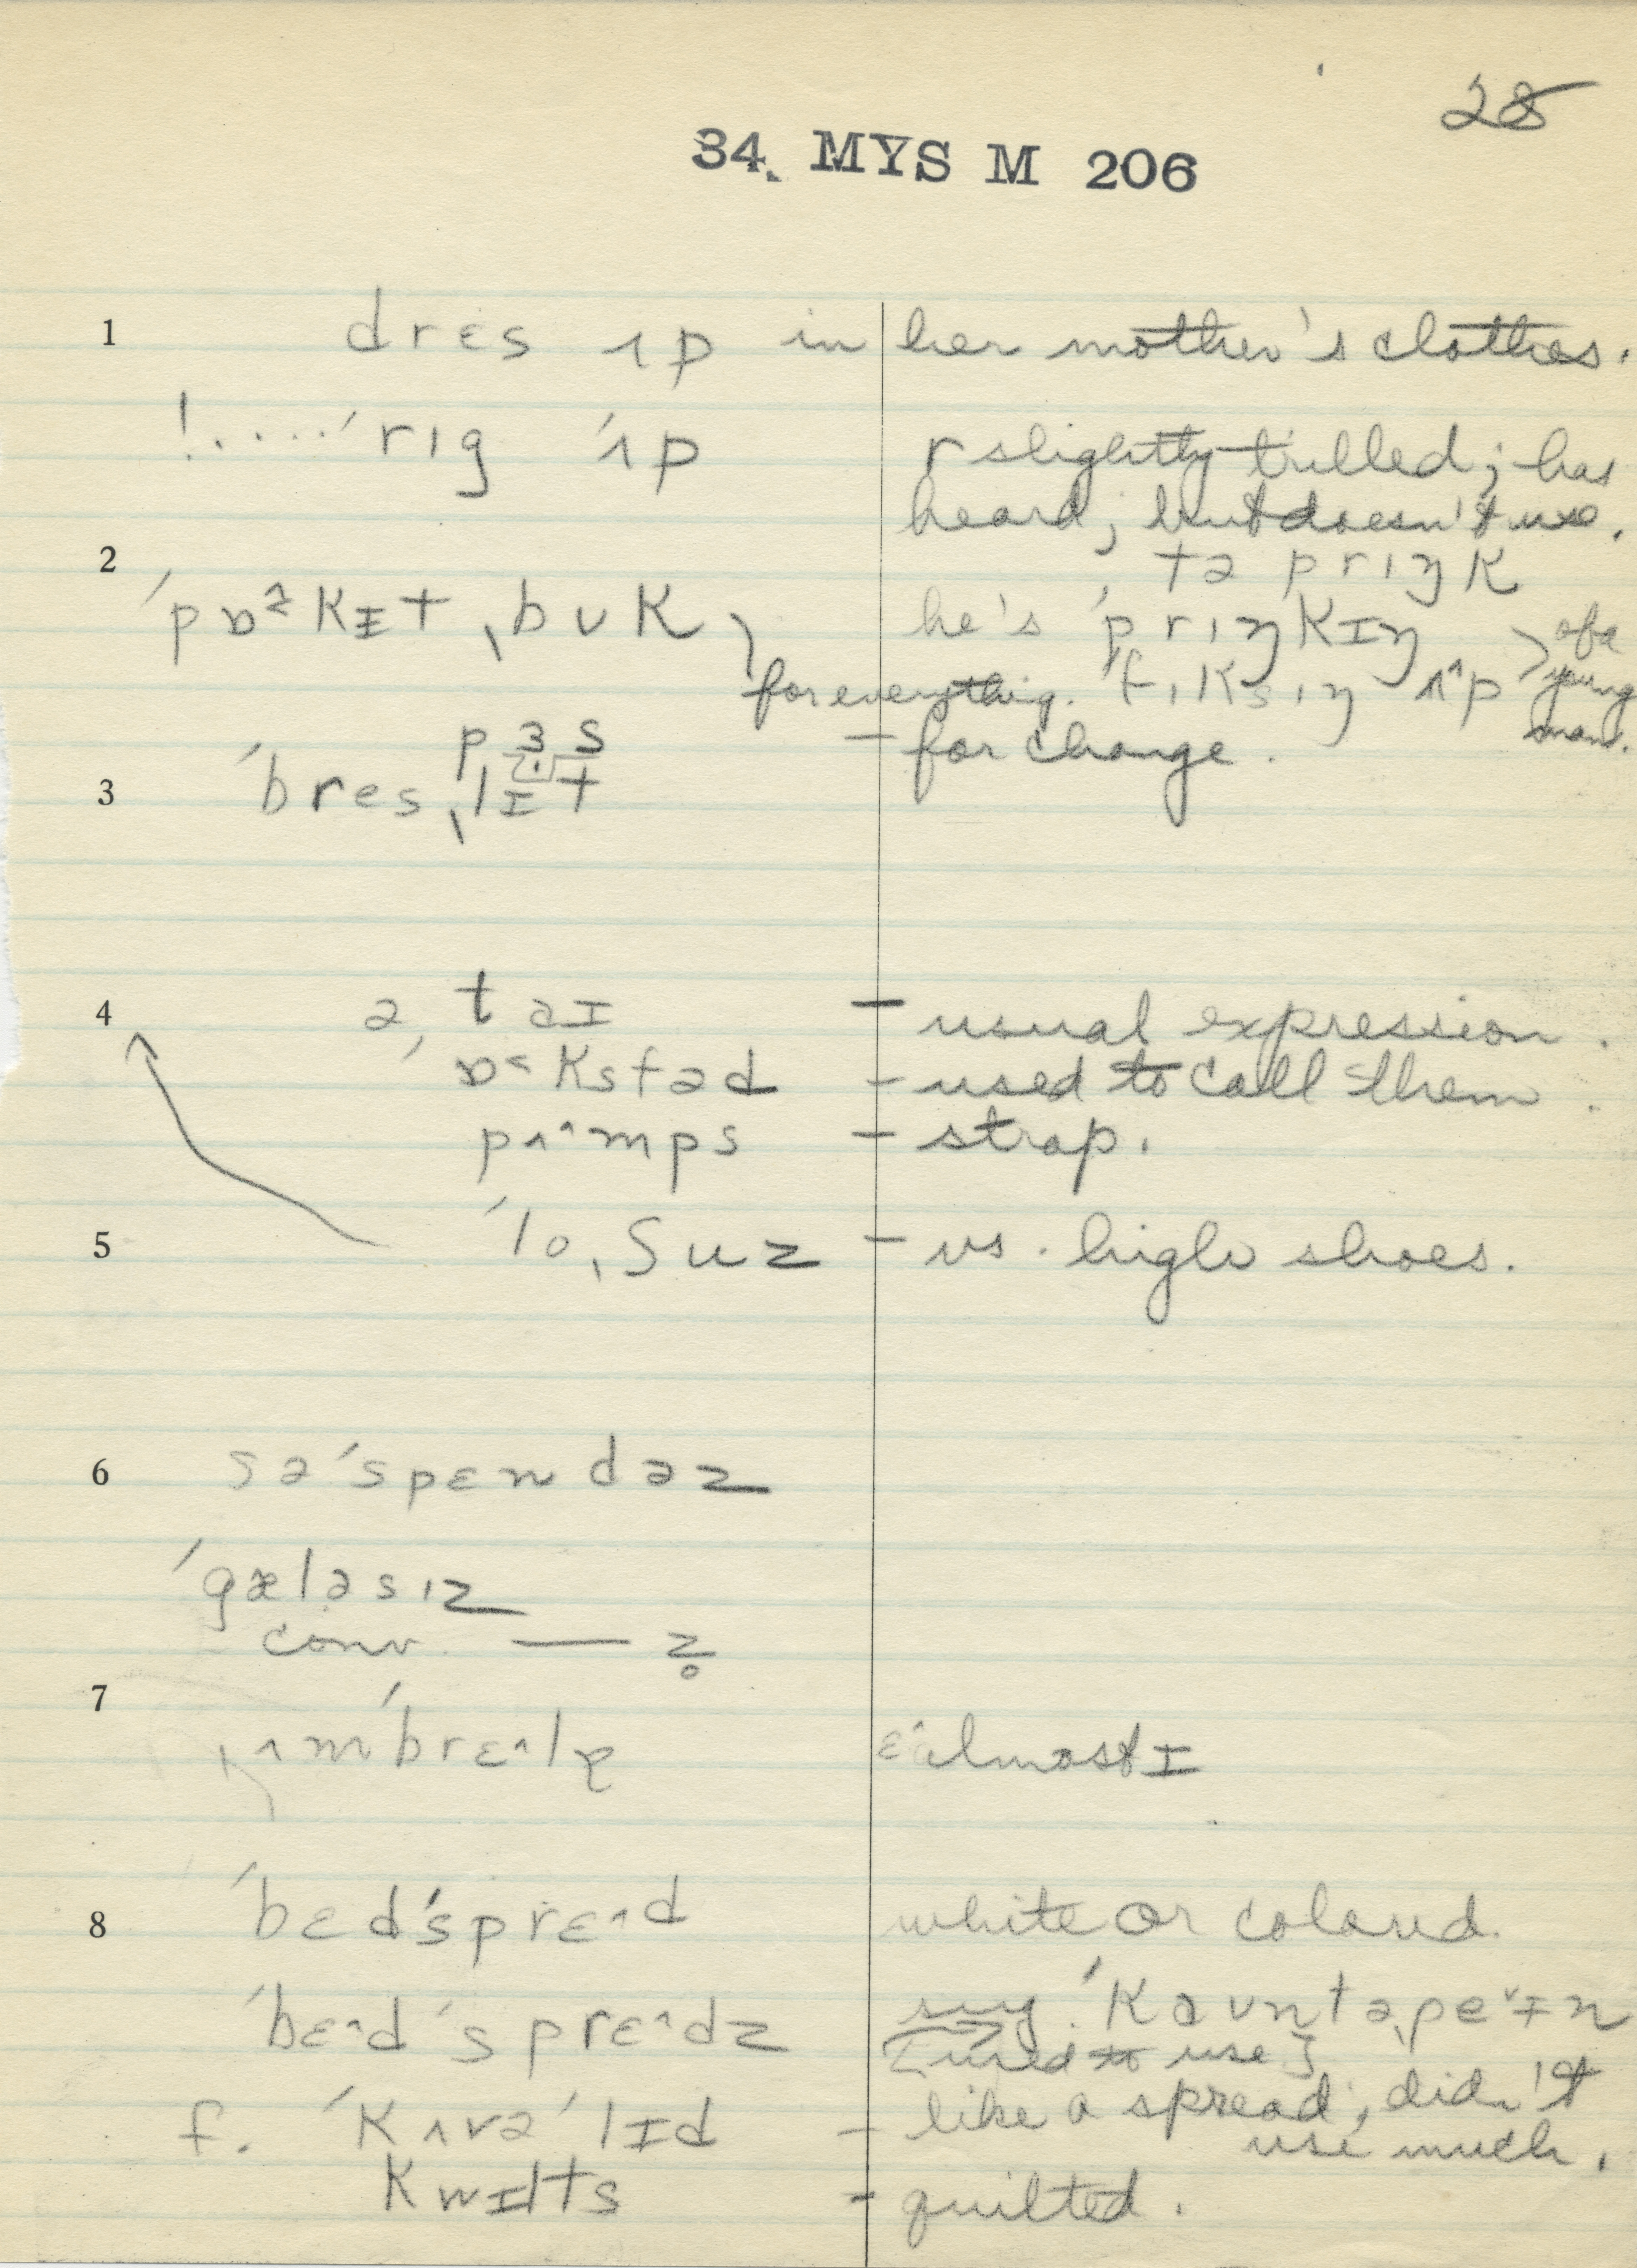 28
34. MYS M 206
1 drɛs ʌp in her mother's clothes.
!....ˈrɪg ˈʌp r slightly trilled; has
heard; but doesn't use.
2 tə prɪŋk
ˈpɒ˞kɪt ˌbʊk, he's ˈprɪŋkɪŋ > of a
for everything. fɪksɪŋ ʌ^p young
man.
pɜs – for change.
3 ˈbresˌlɪt
4 ə ˌtaɪ – usual expression.
ˈɒ˂ksfəd – used to call them.
pʌ^mps – strap.
5 ˈloˌʃuz – vs. high shoes.
6 səˈspɛndəz
ˈgæləsɪz
conv. — z̥
7 ˌʌmˈbrɛ^lə ɛ^ almost ɪ
8 ˈbɛdˈsprɛ^d white or colored.
ˈbɛ^dˈsprɛ^dz say ˈkaʊntəˌpe˅ɪn
[used to use]
f. ˈkʌvəˈlɪd – like a spread; didn't
use much.
kwɪlts – quilted.